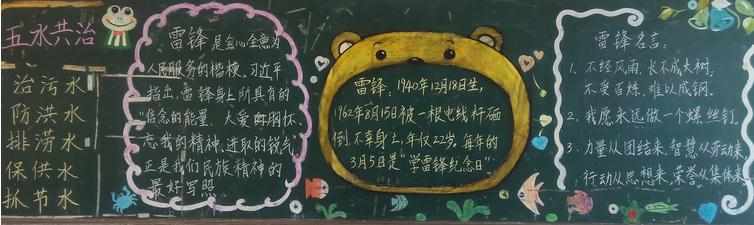 五水共治
治污水
防洪水
排涝水
保供水
抓节水
雷锋是全心全意为
人民服务的楷模,习近平
指出,雷锋身上所具有的
"信念的能量、大爱的胸怀、
忘我的精神、进取的锐气"
正是我们民族精神的
最好写照。
雷锋:1940年12月18日生,
1962年8月15日被一根电线杆砸
倒,不幸身亡,年仅22岁。每年的
3月5日是"学雷锋纪念日"
雷锋名言:
1. 不经风雨,长不成大树,
不受百炼,难以成钢。
2. 我愿永远做一个螺丝钉。
3. 力量从团结来,智慧从劳动来,
行动从思想来,荣誉从集体来